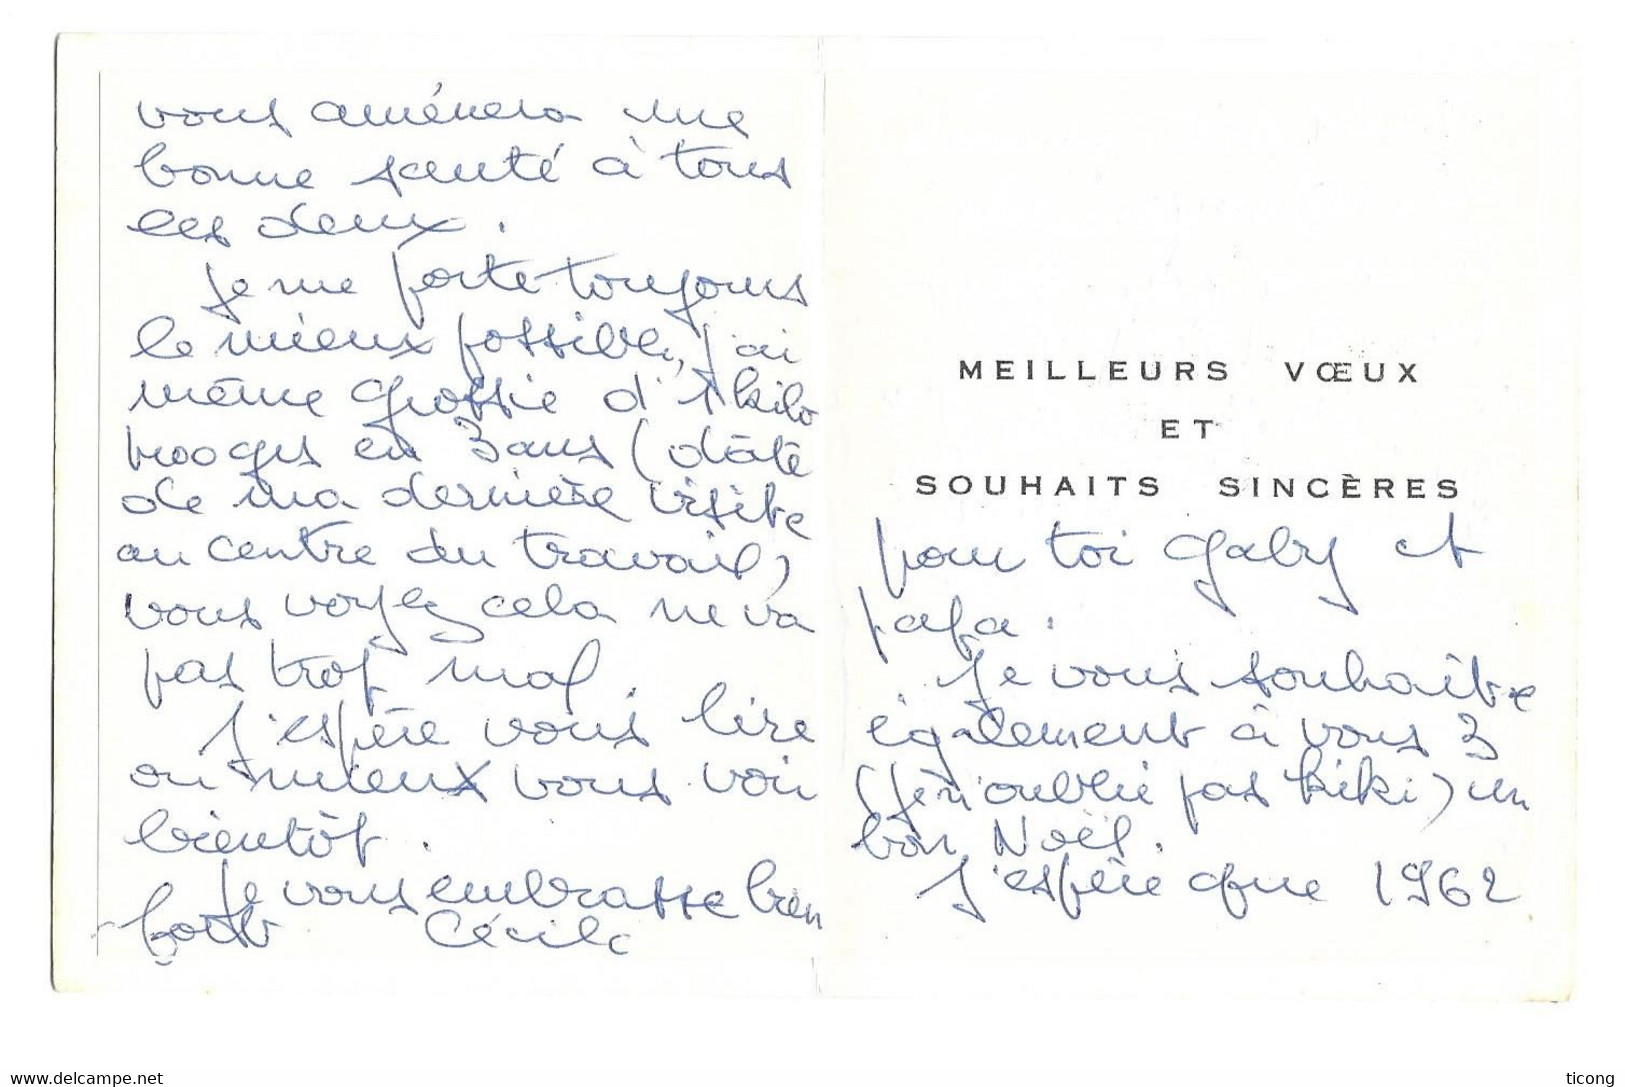 MEILLEURS VŒUX
ET
SOUHAITS SINCÈRES
pour toi Gaby et
papa.
Je vous souhaite
également à vous 3
(je n'oublie pas Kiki) un
bon Noël.
J'espère que 1962
vous amènera une
bonne santé à tous
les deux.
Je me porte toujours
le mieux possible, j'ai
même grossie d'1 kilo
en 3 ans (date
de ma dernière visite
au centre du travail)
vous voyez cela ne va
pas trop mal.
J'espère vous lire
ou mieux vous voir
bientôt.
Je vous embrasse bien
fort Cécile
www.delcampe.net
ticong